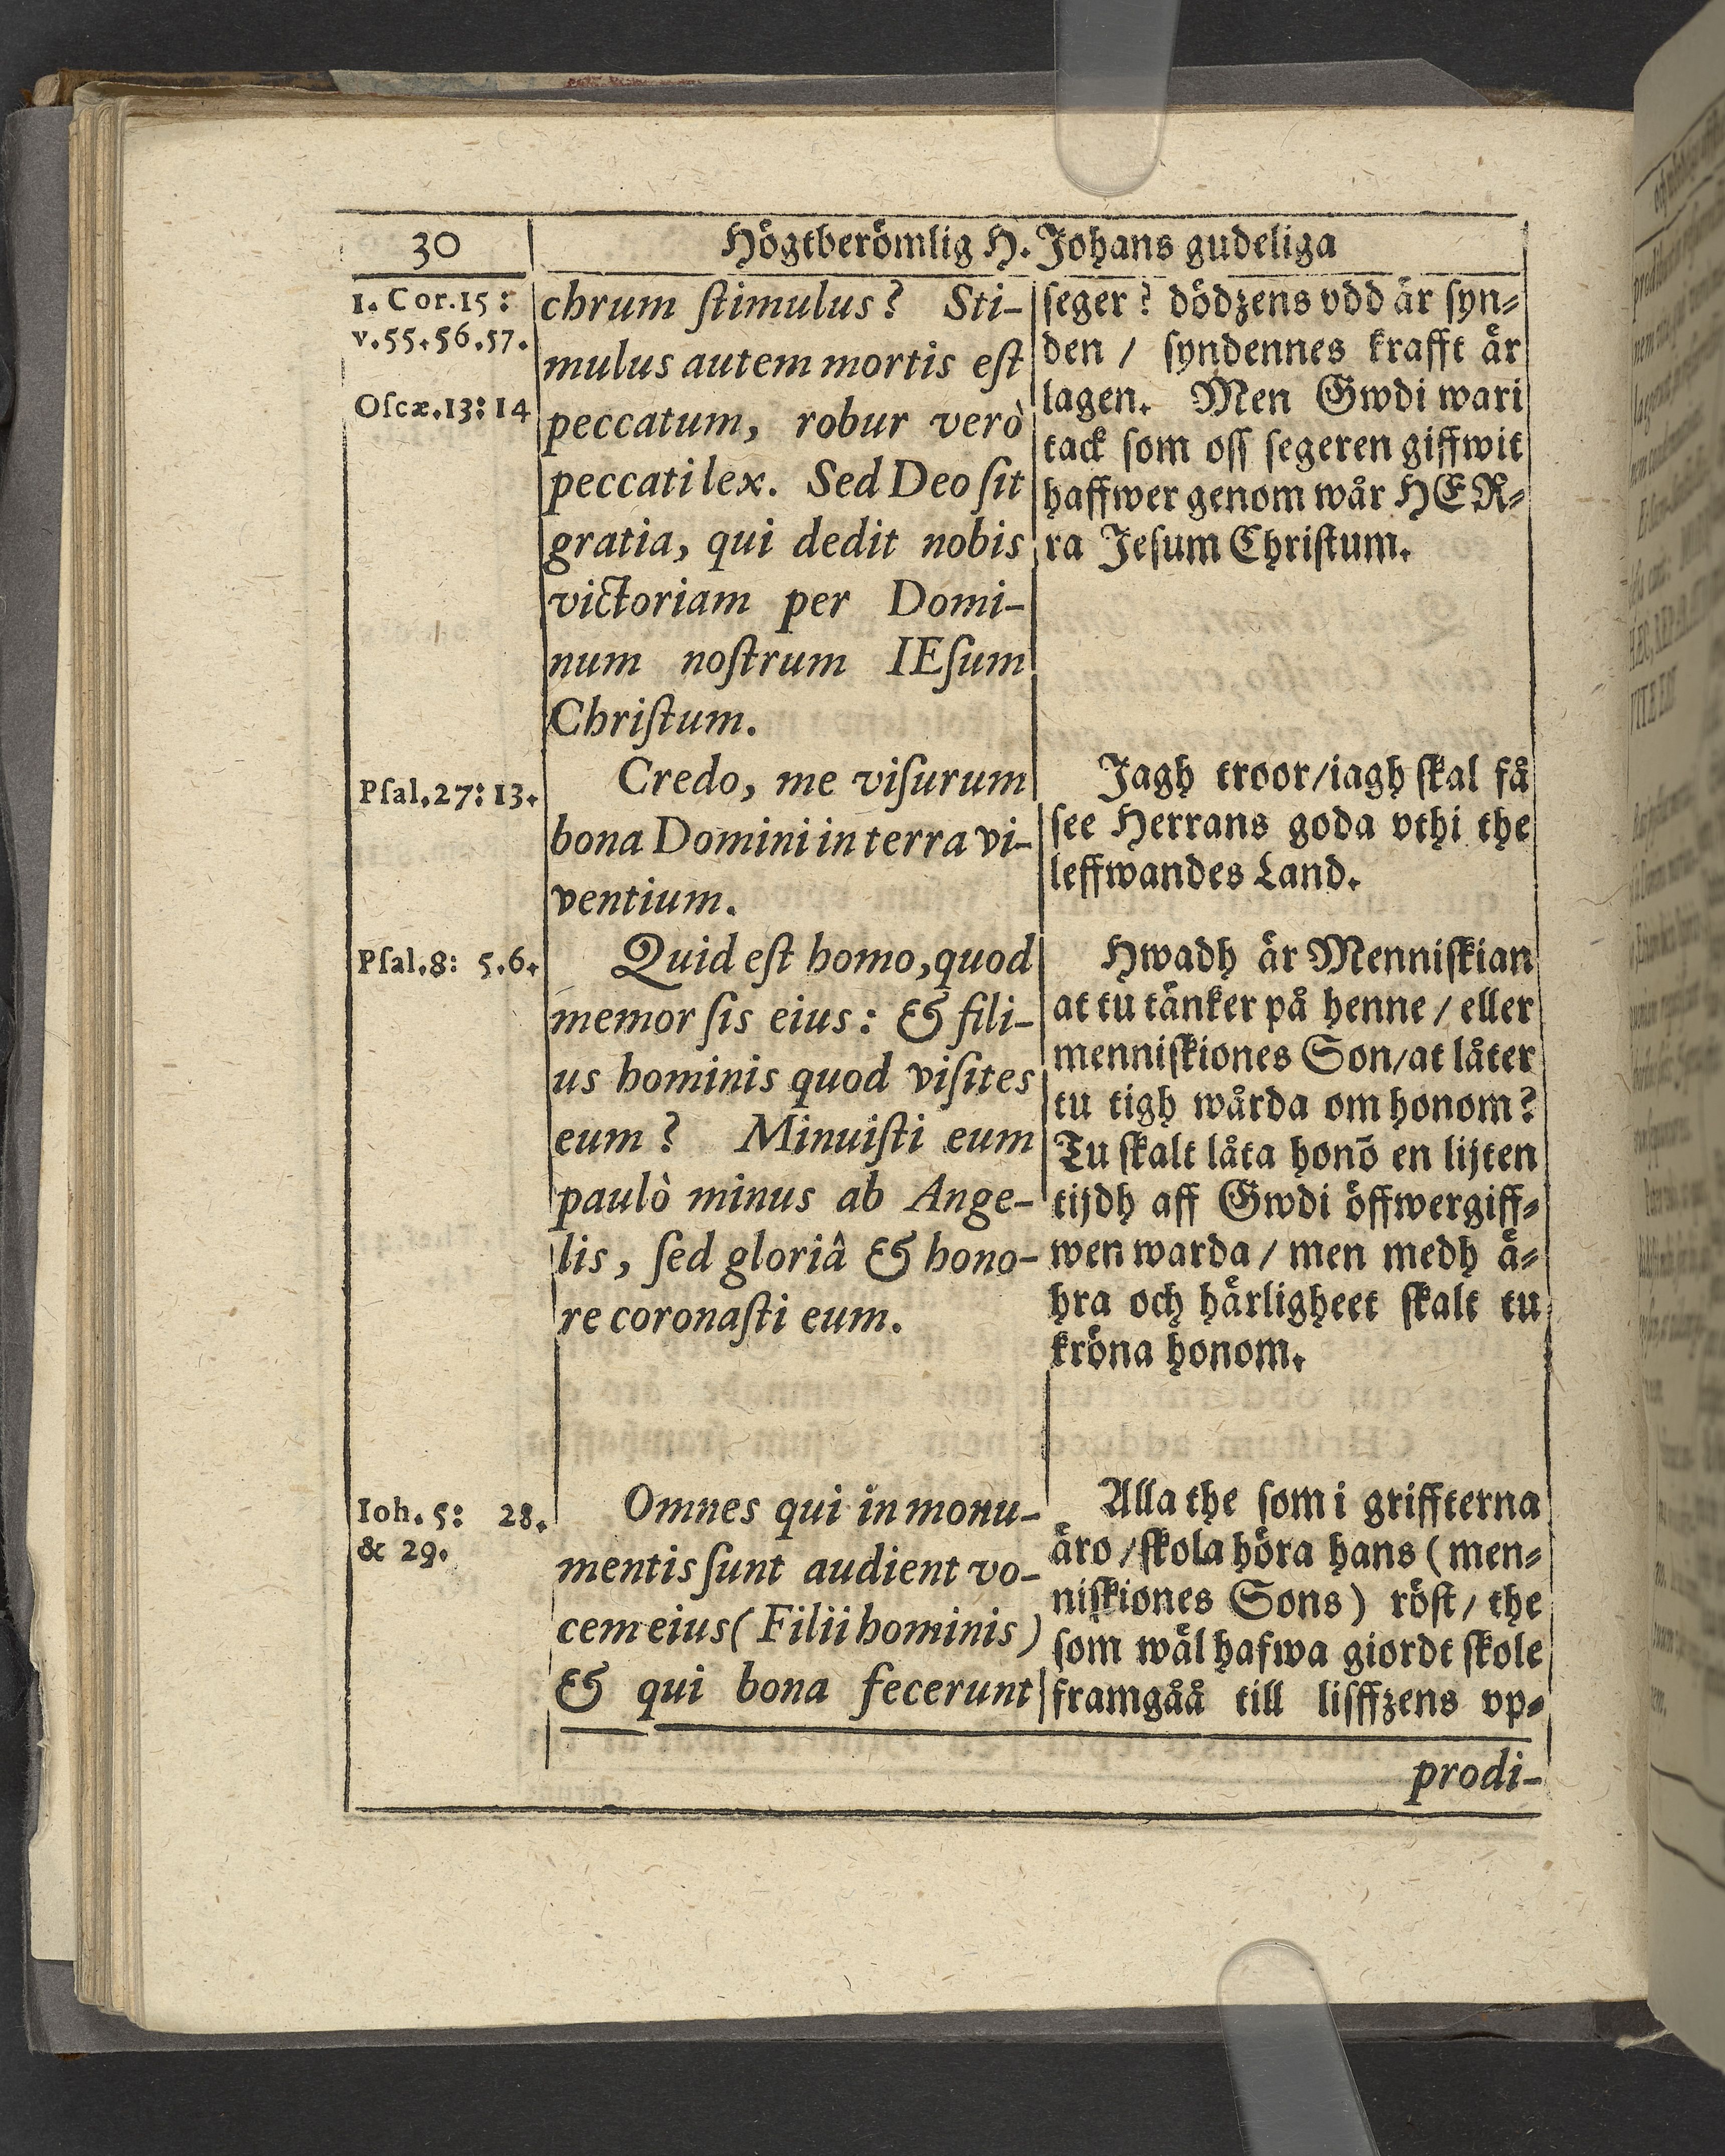 30
Högtberömlig H. Johans gudeliga
1. Cor.15:
v.55.56.57.
Oſcæ.13:14
chrum ſtimulus? Sti-
mulus autem mortis eſt
peccatum, robur verò
peccati lex. Sed Deo ſit
gratia, qui dedit nobis
victoriam per Domi-
num noſtrum IEſum
Chriſtum.
ſeger? dödzens vdd är ſyn-
den / ſyndennes krafft är
lagen. Men Gwdi wari
tack ſom oſſ ſegeren giffwit
haffwer genom wår HER-
ra Jeſum Chriſtum.
Pſal.27:13.
Credo, me viſurum
bona Domini in terra vi-
ventium.
Jagh troor/iagh ſkal få
ſee Herrans goda vthi the
leffwandes Land.
Pſal.8: 5.6.
Quid eſt homo, quod
memor ſis eius: & fili-
us hominis quod viſites
eum? Minuiſti eum
paulò minus ab Ange-
lis, ſed gloriâ & hono-
re coronaſti eum.
Hwadh är Menniſkian
at tu tänker på henne / eller
menniſkiones Son/at låter
tu tigh wårda om honom?
Tu ſkalt låta honō en lijten
tijdh aff Gwdi öffwergiff-
wen warda / men medh ä-
hra och härligheet ſkalt tu
kröna honom.
Ioh. 5: 28.
& 29.
Omnes qui in monu-
mentis ſunt audient vo-
cem eius (Filii hominis)
& qui bona fecerunt
Alla the ſom i griffterna
äro /ſkola höra hans (men-
niſkiones Sons) röſt / the
ſom wäl hafwa giordt ſkole
framgåå till liſffzens vp-
prodi-